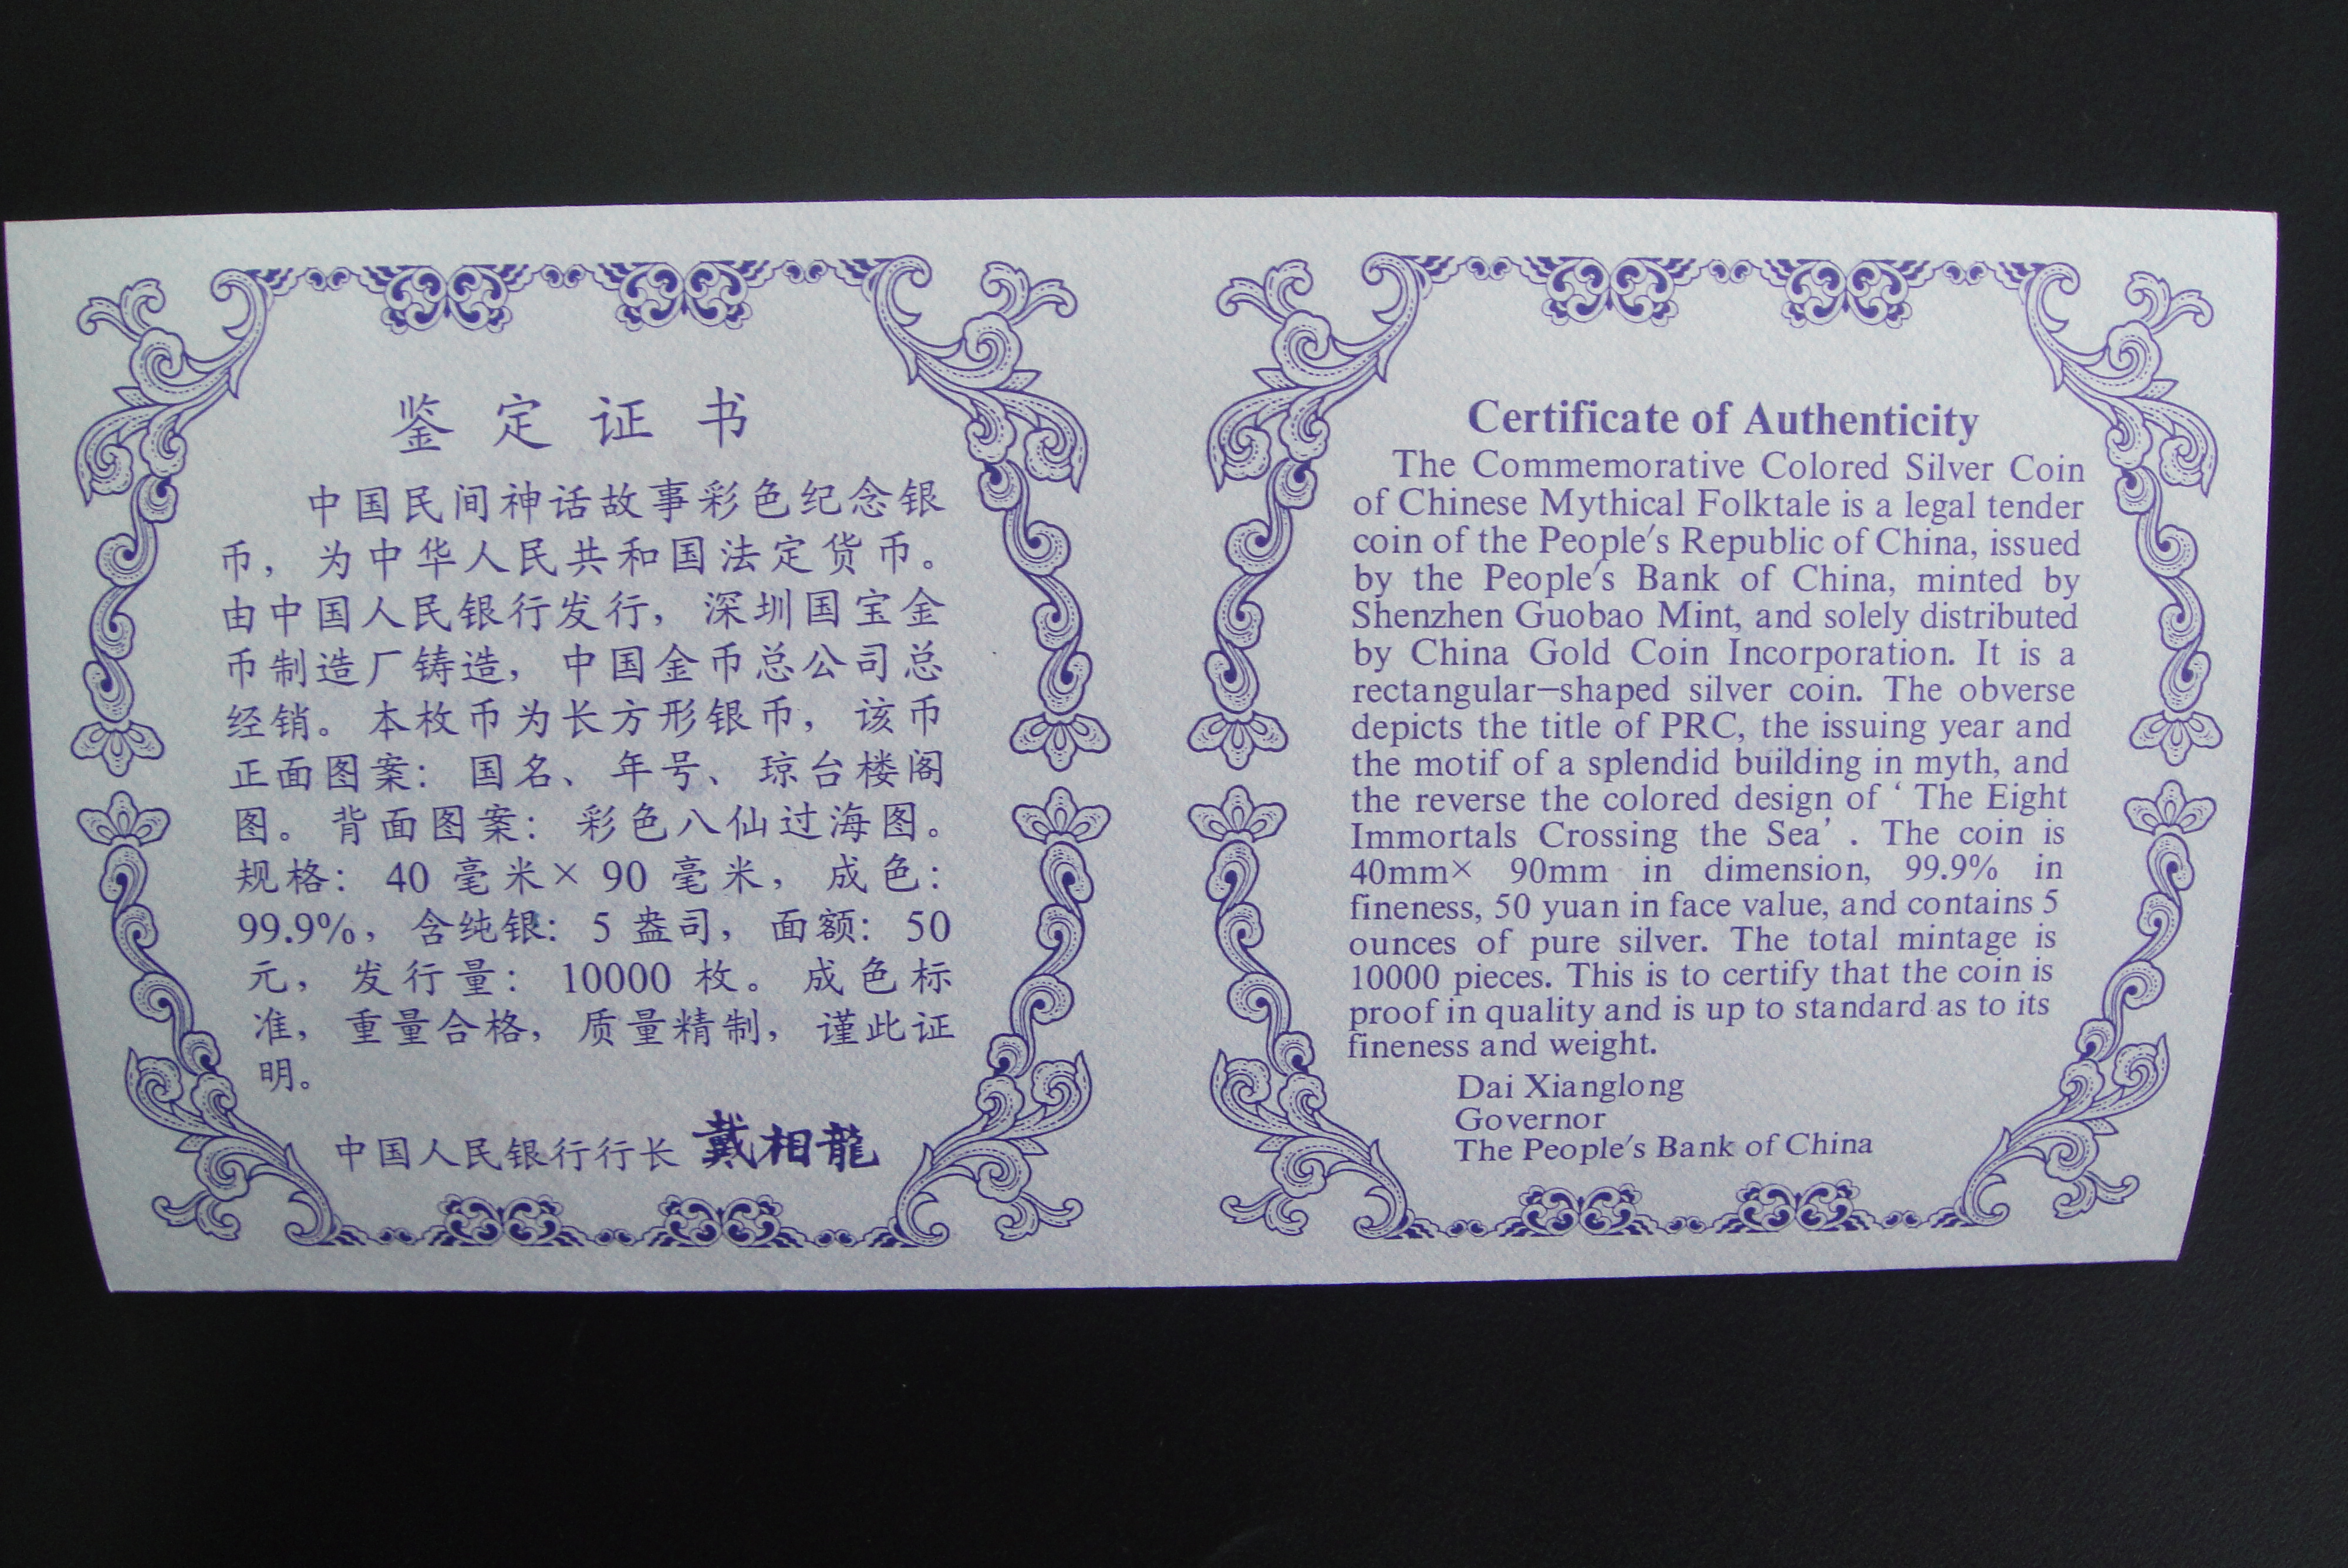 鉴定证书
中国民间神话故事彩色纪念银
币，为中华人民共和国法定货币。
由中国人民银行发行，深圳国宝金
币制造厂铸造，中国金币总公司总
经销。本枚币为长方形银币，该币
正面图案：国名、年号、琼台楼阁
图。背面图案：彩色八仙过海图。
规格：40 毫米× 90 毫米，成色：
99.9%，含纯银：5 盎司，面额：50
元，发行量：10000 枚。成色标
准，重量合格，质量精制，谨此证
明。
中国人民银行行长 戴相龍
Certificate of Authenticity
The Commemorative Colored Silver Coin
of Chinese Mythical Folktale is a legal tender
coin of the People's Republic of China, issued
by the People's Bank of China, minted by
Shenzhen Guobao Mint, and solely distributed
by China Gold Coin Incorporation. It is a
rectangular-shaped silver coin. The obverse
depicts the title of PRC, the issuing year and
the motif of a splendid building in myth, and
the reverse the colored design of ‘ The Eight
Immortals Crossing the Sea’ . The coin is
40mm× 90mm in dimension, 99.9% in
fineness, 50 yuan in face value, and contains 5
ounces of pure silver. The total mintage is
10000 pieces. This is to certify that the coin is
proof in quality and is up to standard as to its
fineness and weight.
Dai Xianglong
Governor
The People's Bank of China